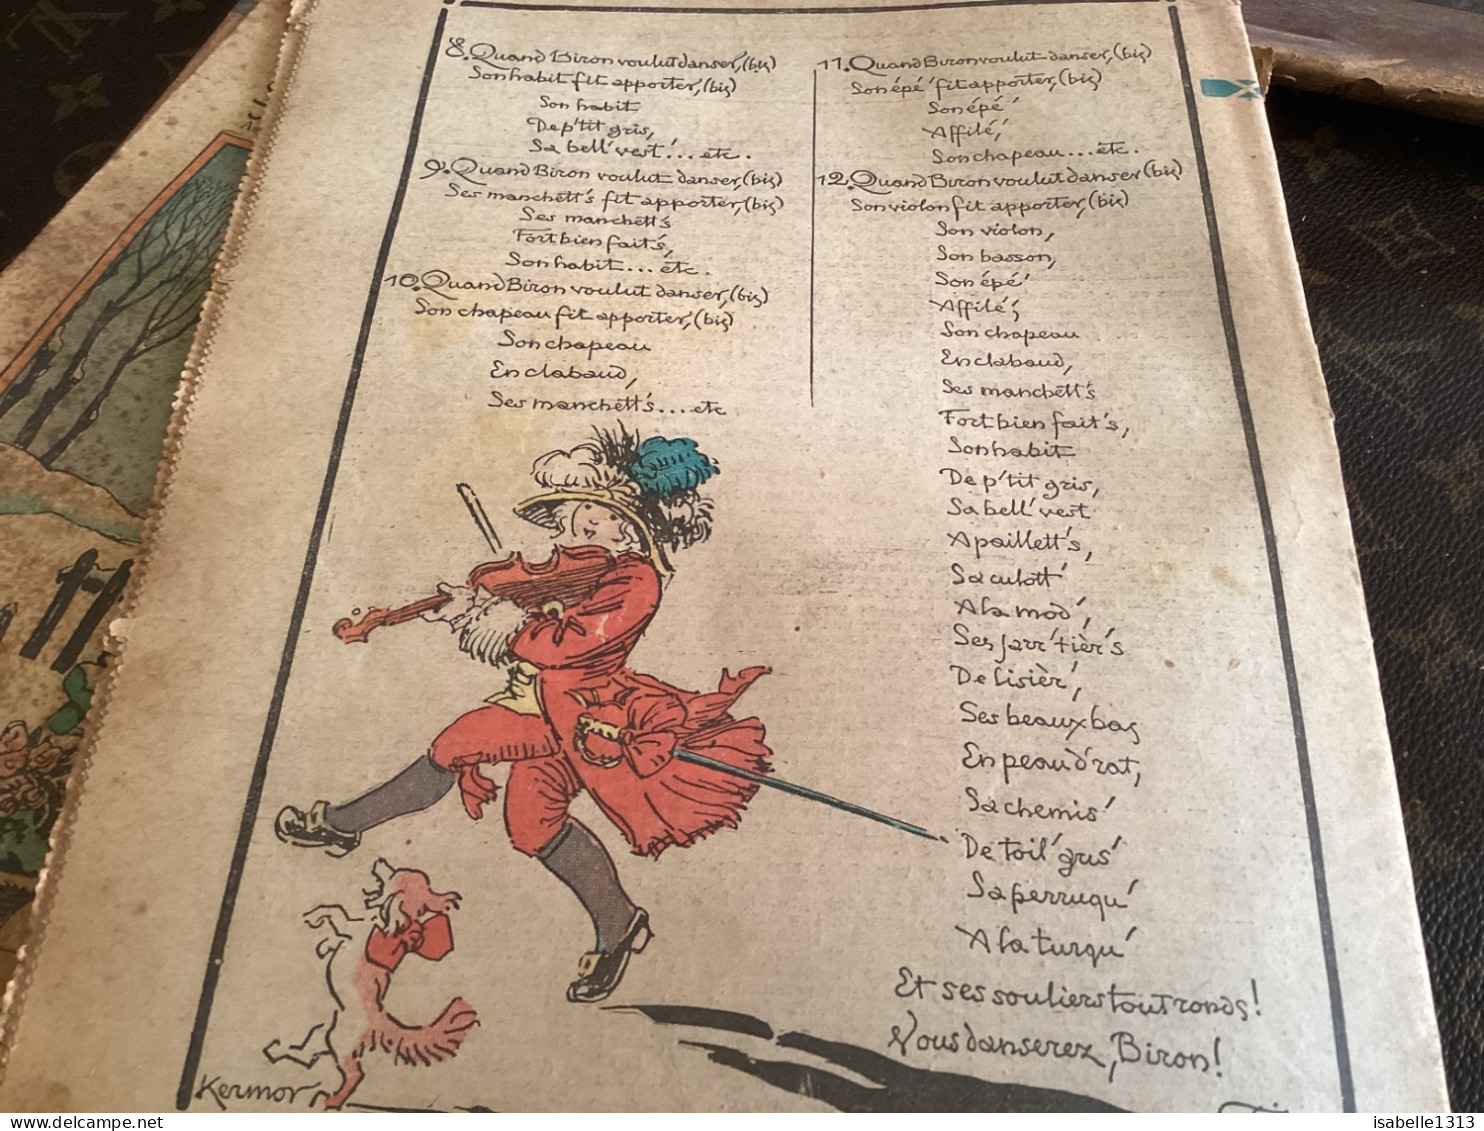 8. Quand Biron voulut danser, (bis)
Son habit fit apporter, (bis)
Son habit
De p'tit gris,
Sa bell' vest'... etc.
9. Quand Biron voulut danser, (bis)
Ses manchett's fit apporter, (bis)
Ses manchett's
Fort bien fait's,
Son habit... etc.
10. Quand Biron voulut danser, (bis)
Son chapeau fit apporter, (bis)
Son chapeau
En clabaud,
Ses manchett's... etc
11. Quand Biron voulut danser, (bis)
Son épé' fit apporter, (bis)
Son épé'
Affilé',
Son chapeau... etc.
12. Quand Biron voulut danser (bis)
Son violon fit apporter, (bis)
Son violon,
Son basson,
Son épé'
Affilé',
Son chapeau
En clabaud,
Ses manchett's
Fort bien fait's,
Son habit
De p'tit gris,
Sa bell' vest
A paillett's,
Sa culott'
A la mod',
Ses jarr'tièr's
De lisièr',
Ses beaux bas
En peau d'rat,
Sa chemis'
De toil' gris'
Sa perruqu'
A la turqu'
Et ses souliers tout ronds!
Vous danserez, Biron!
Kermor
isabelle1313